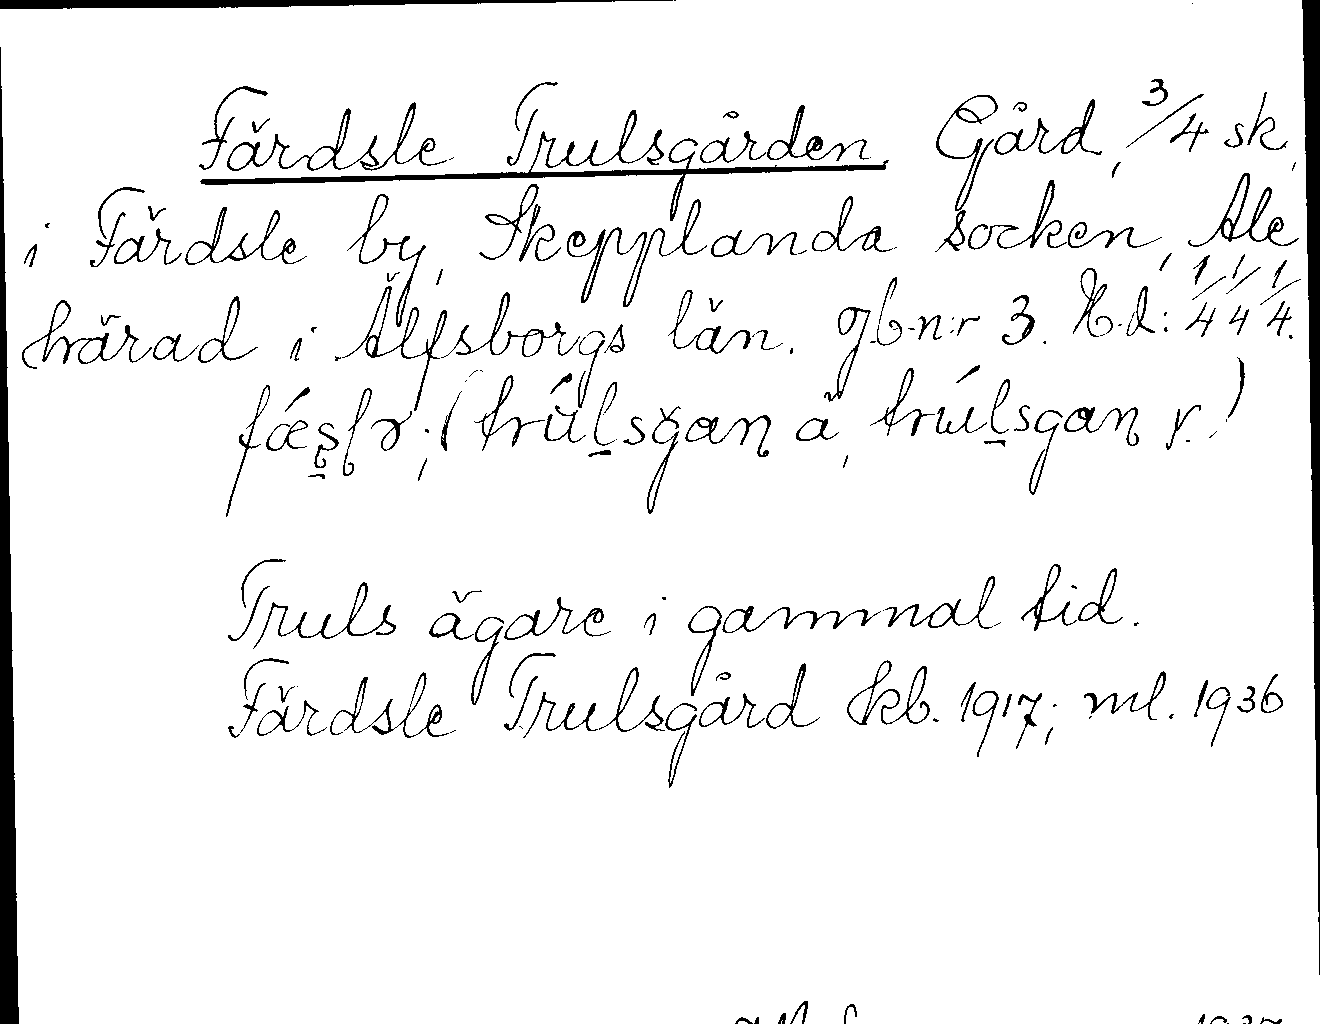 Färdsle Trulsgården. Gård, 3/4 sk.
i Färdsle by, Skepplanda socken, Ale
härad i Älfsborgs län. gb-n:r 3. H.d: 1/4 1/4 1/4.
(trúlsgan ä, trúlsgan r.)
Truls ägare i gammal tid.
Färdsle Trulsgård Skb. 1917; ml. 1936
1937